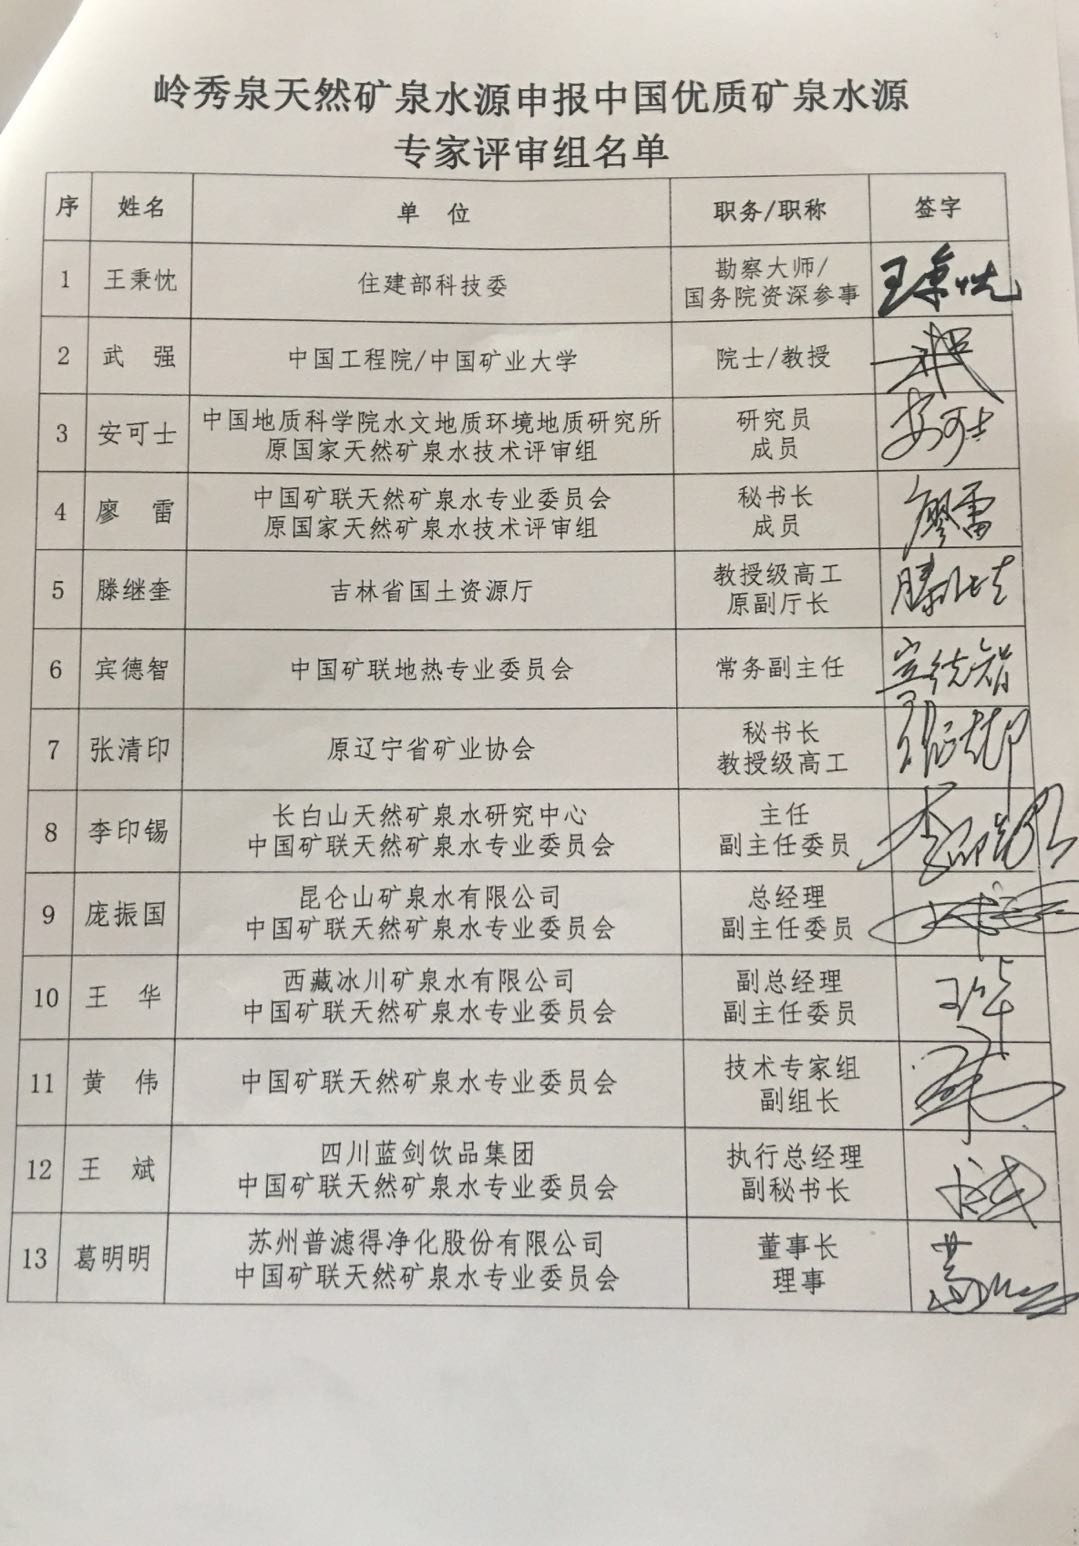 岭秀泉天然矿泉水源申报中国优质矿泉水源
专家评审组名单
序 姓名 单 位 职务/职称 签字
1 王秉忱 住建部科技委 勘察大师/
国务院资深参事 王秉忱
2 武 强 中国工程院/中国矿业大学 院士/教授 武强
3 安可士 中国地质科学院水文地质环境地质研究所
原国家天然矿泉水技术评审组 研究员
成员 安可士
4 廖 雷 中国矿联天然矿泉水专业委员会
原国家天然矿泉水技术评审组 秘书长
成员 廖雷
5 滕继奎 吉林省国土资源厅 教授级高工
原副厅长 滕继奎
6 宾德智 中国矿联地热专业委员会 常务副主任 宾德智
7 张清印 原辽宁省矿业协会 秘书长
教授级高工 张清印
8 李印锡 长白山天然矿泉水研究中心
中国矿联天然矿泉水专业委员会 主任
副主任委员 李印锡
9 庞振国 昆仑山矿泉水有限公司
中国矿联天然矿泉水专业委员会 总经理
副主任委员
10 王 华 西藏冰川矿泉水有限公司
中国矿联天然矿泉水专业委员会 副总经理
副主任委员 王华
11 黄 伟 中国矿联天然矿泉水专业委员会 技术专家组
副组长
12 王 斌 四川蓝剑饮品集团
中国矿联天然矿泉水专业委员会 执行总经理
副秘书长
13 葛明明 苏州普滤得净化股份有限公司
中国矿联天然矿泉水专业委员会 董事长
理事